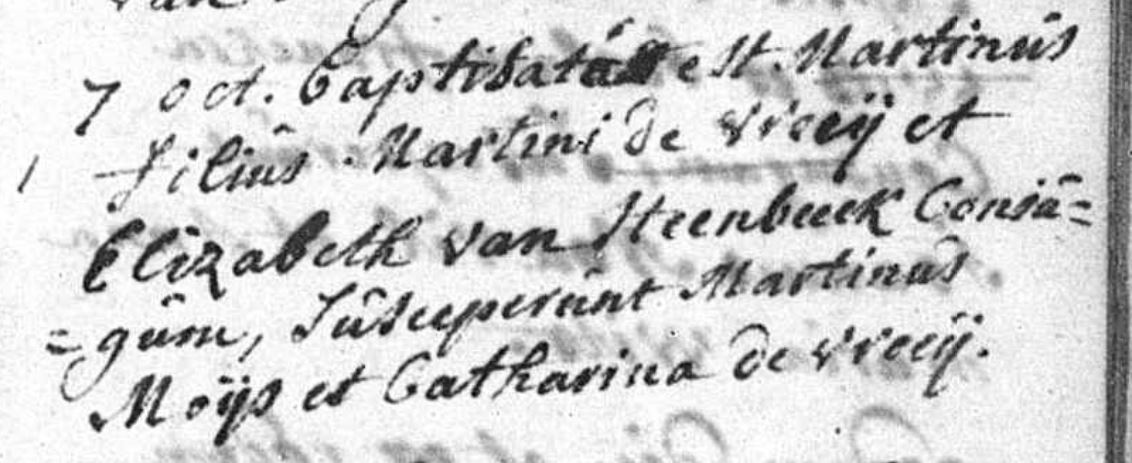 van
7 oct. Baptisatus est. Martinûs
1 filiûs Martini de Vreeij et
Elizabeth van Steenbeeck Conjû=
=gûm, Sûsceperûnt Martinûs
Moijs et Catharina de Vreeij.